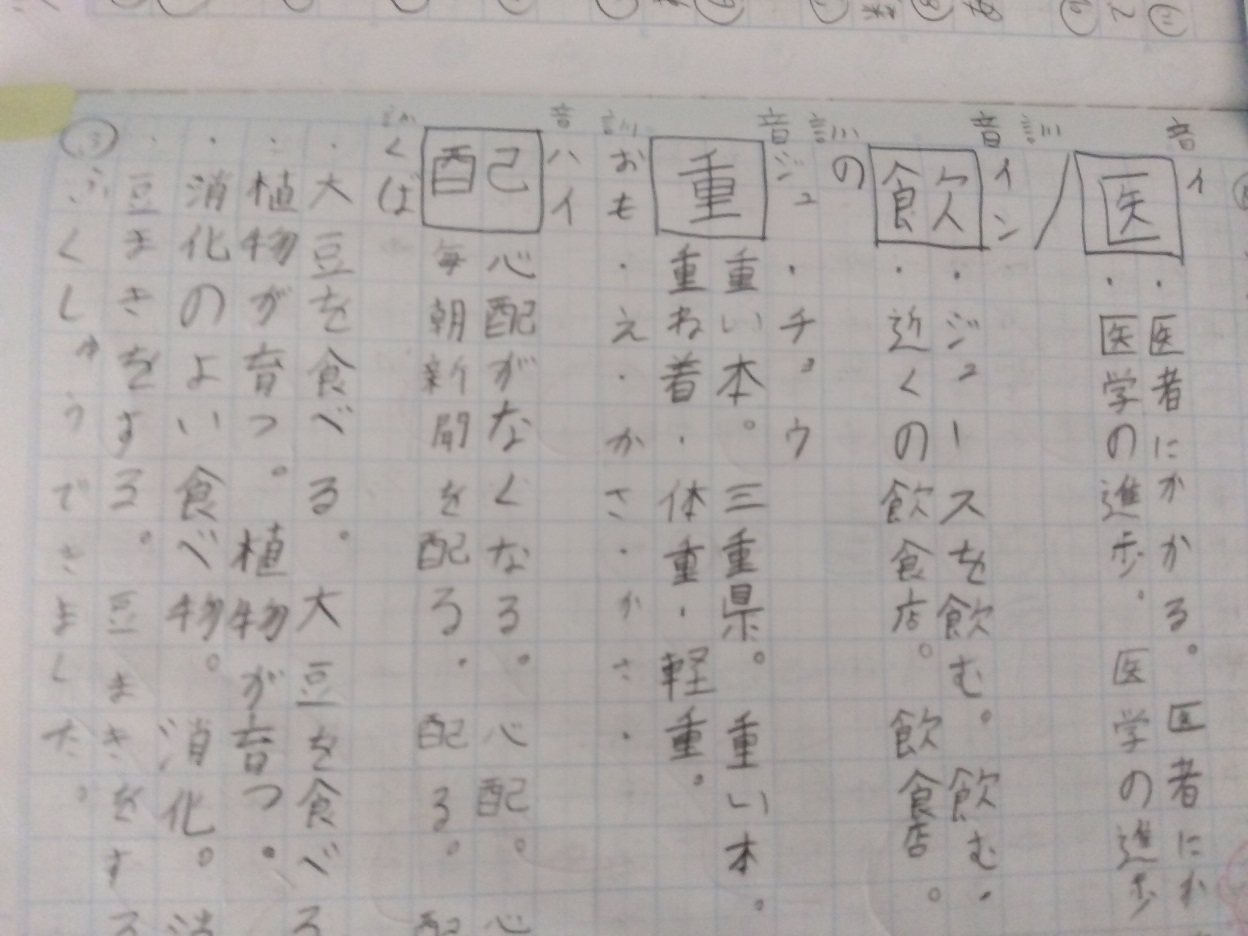 音 イ
医
・医者にかかる。医者にか
・医学の進歩。医学の進歩
訓
音 イン
飲
・ジュースを飲む。飲む。
・近くの飲食店。飲食店。
訓 の
音 ジュウ・チョウ
重
重い本。三重県。重い本。
重ね着・体重・軽重。
訓 おも・え・かさ・かさ・
音 ハイ
配
心配がなくなる。心配。心
毎朝新聞を配る。配る。配
訓 くば
・大豆を食べる。大豆を食べる
・植物が育つ。植物が育つ。
・消化のよい食べ物。消化。消
・豆まきをする。豆まきをする
ふくしゅうできました。